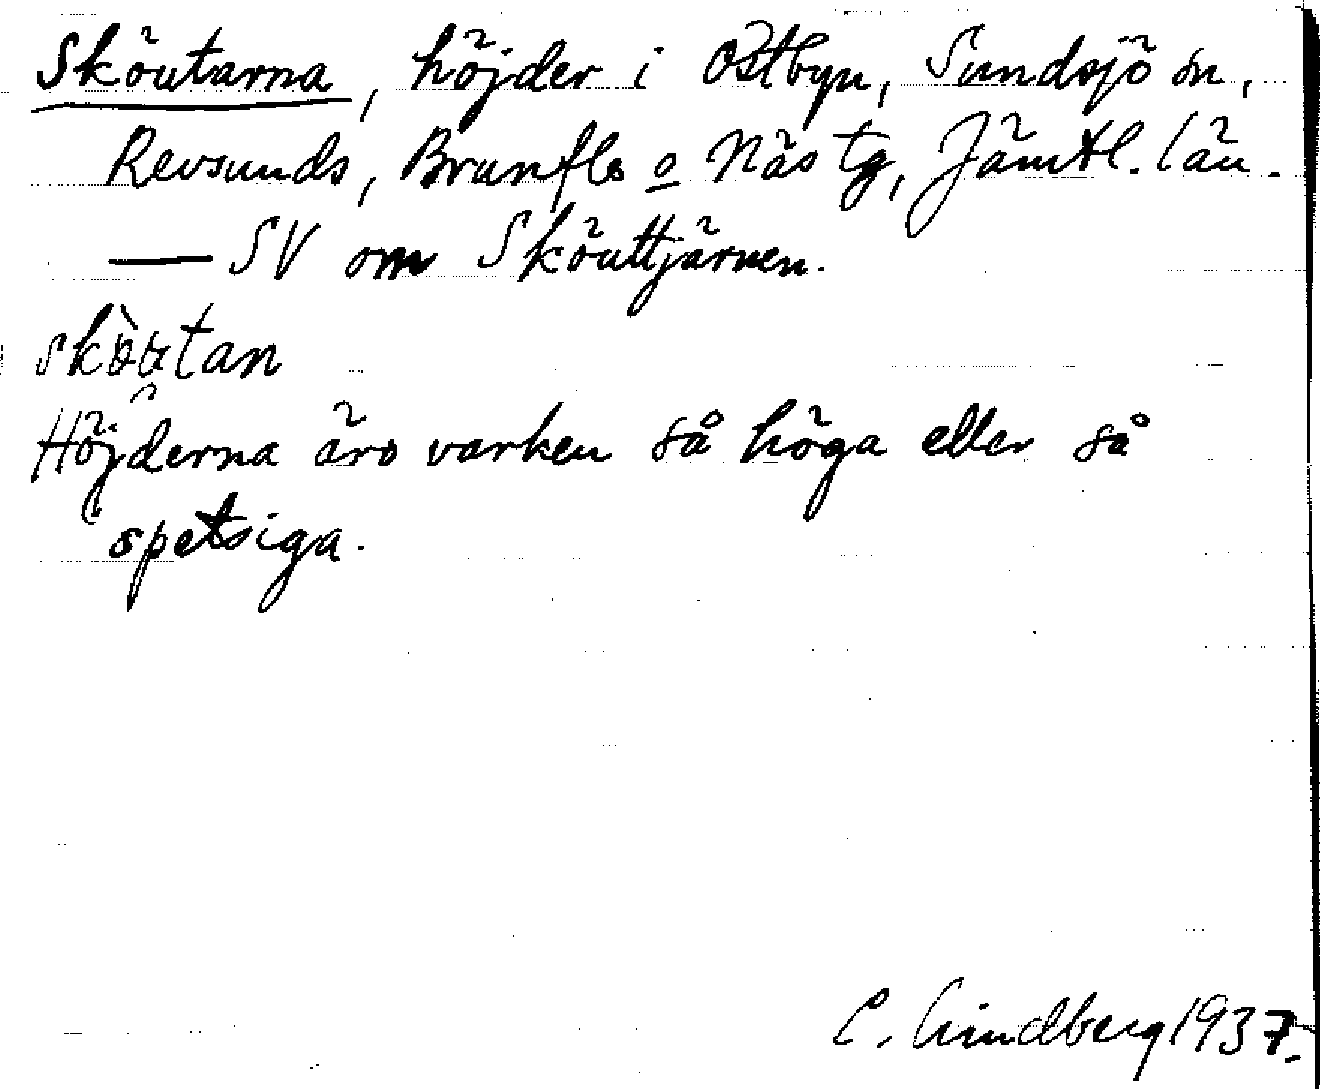 Sköutarna, höjder i Östbyn, Sundsjö sn,
Revsunds, Brunflo o Näs tg, Jämtl. län.
— SV om Sköuttjärnen.
skò̯u̯tan
Höjderna äro varken så höga eller så
spetsiga.
C. Lindberg 1937.